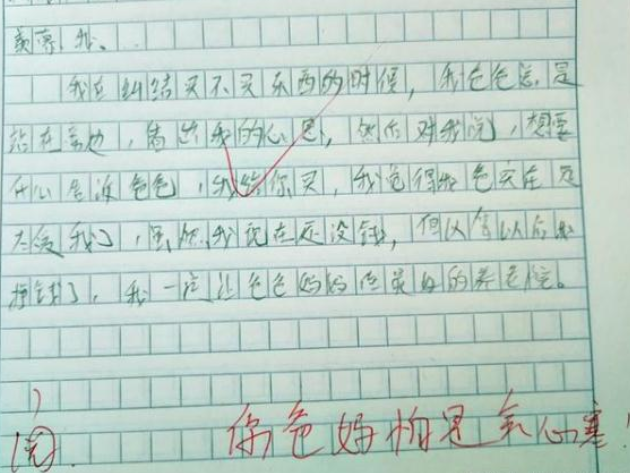 羡慕我。
我在纠结买不买东西的时候，我爸爸总是
站在旁边，看出我的心思，然后对我说，想要
开心告诉爸爸，我给你买，我觉得我爸实在是
太爱我了，虽然我现在还没钱，但以后我
挣钱了，我一定让爸爸妈妈住最好的养老院。
你爸妈怕是 心塞！